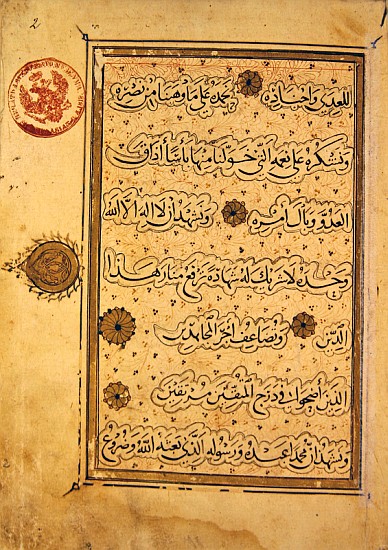 2
للعدو نحمده على ما وهبنا من نصره
ونشكره على نعمه التي خولنا منها بأسا أذاق
العدو وبال أمره ونشهد أن لا اله الا الله
وحده لا شريك له شهادة ترفع منار هذا
الدين وتضاعف أجر المجاهدين
الذين أضحوا في درج المتقين مرتقين
ونشهد أن محمدا عبده ورسوله الذي بعثه الله وضروع